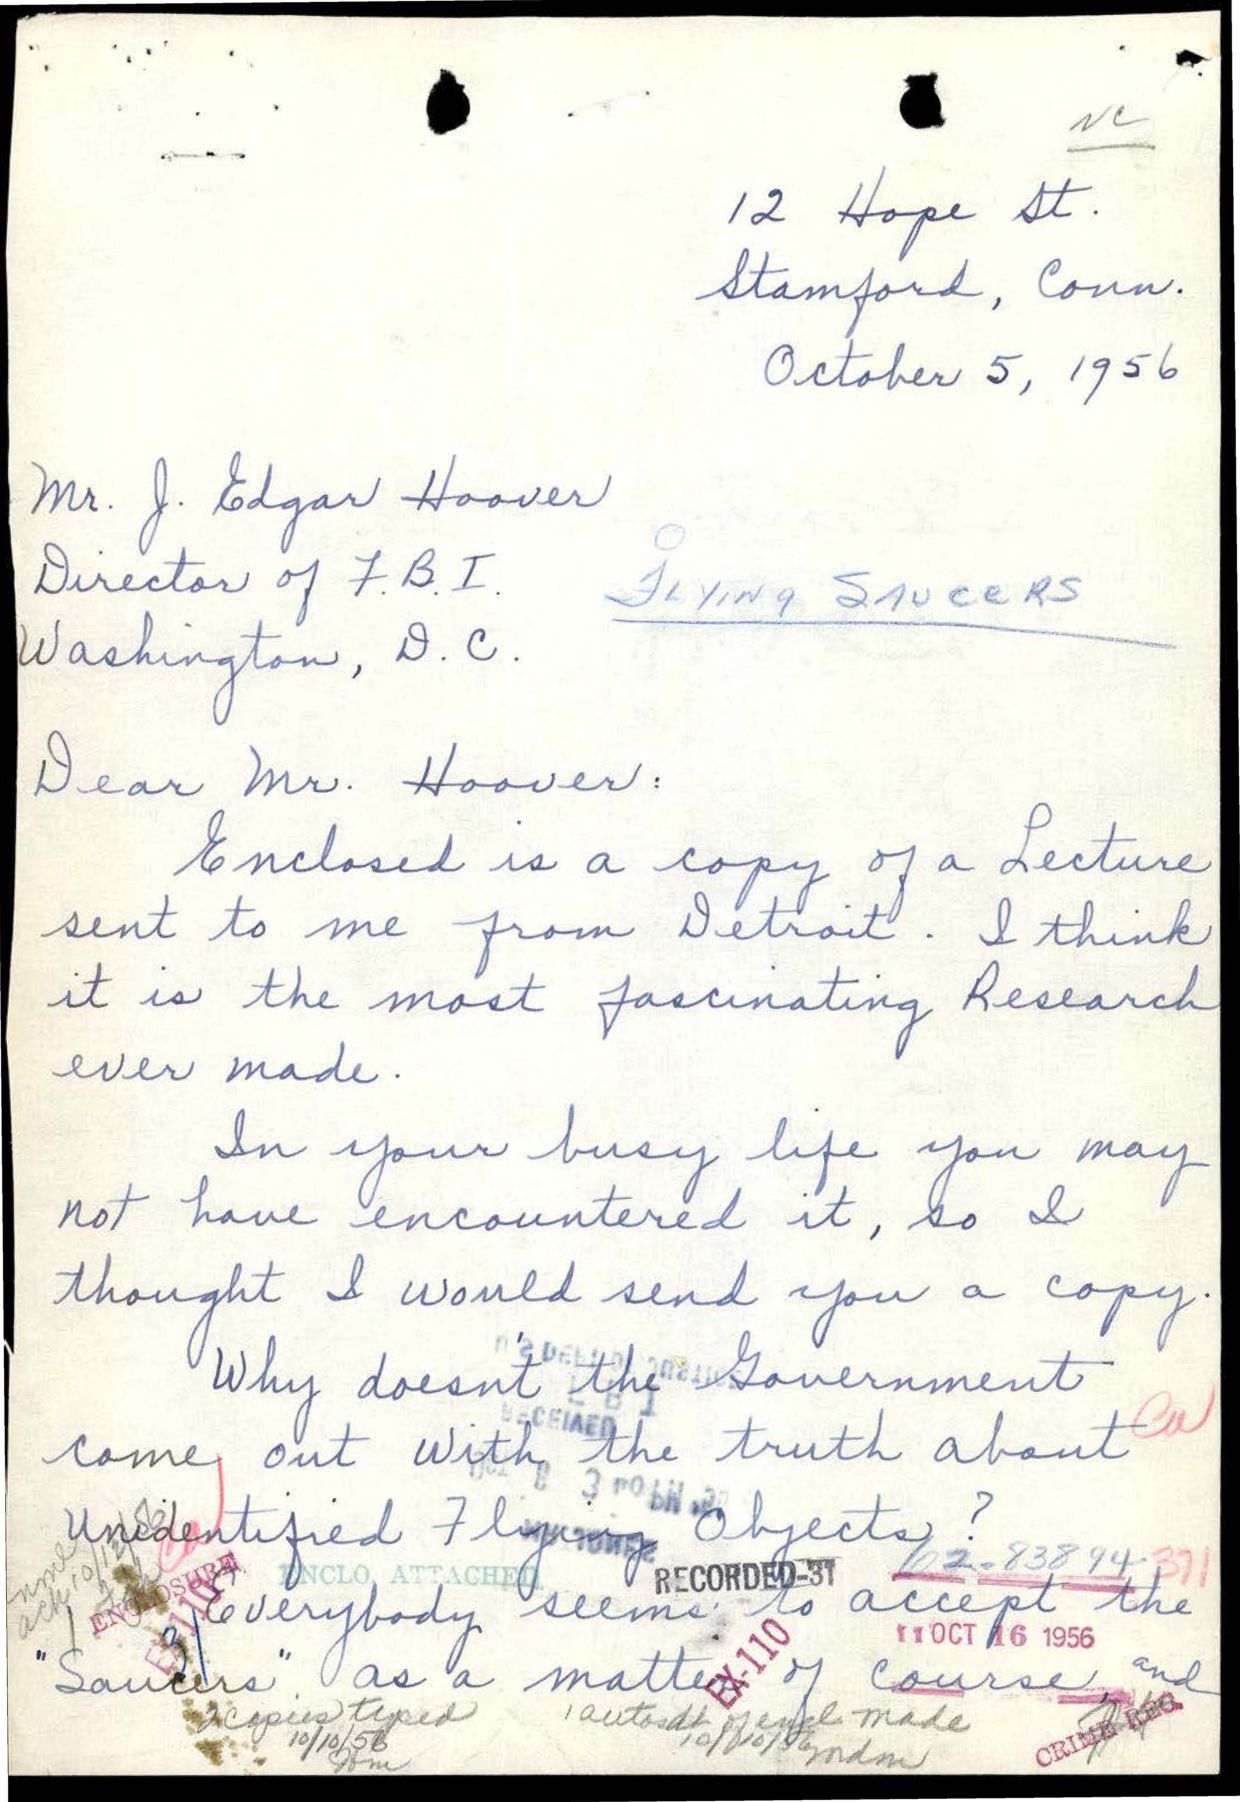 NC
12 Hope St.
Stamford, Conn.
October 5, 1956
Mr. J. Edgar Hoover
Director of F.B.I.
Washington, D.C.
FLYING SAUCERS
Dear Mr. Hoover:
Enclosed is a copy of a Lecture
sent to me from Detroit. I think
it is the most fascinating Research
ever made.
In your busy life you may
not have encountered it, so I
thought I would send you a copy.
Why doesn't the Government
come out with the truth about
Unidentified Flying Objects?
RECEIVED
ENCLO. ATTACHED
RECORDED-31
62-83894-371
ENCLOSURE
EX-110
Everybody seems to accept the
11 OCT 16 1956
"Saucers" as a matter of course, and
EX-110
2 copies typed
10/10/56
made
CRIME REC.